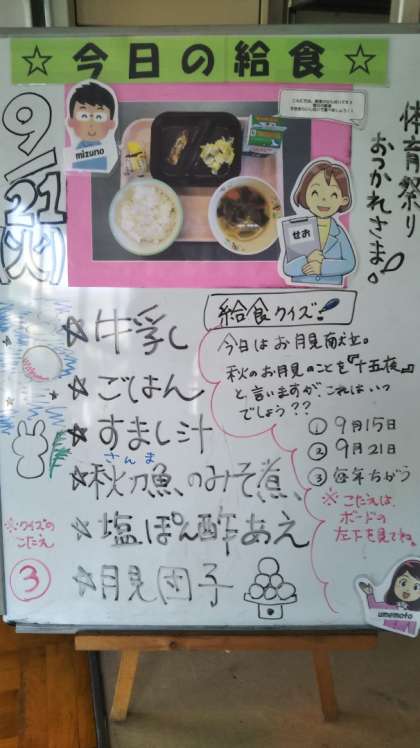 ☆今日の給食☆
mizuno
9/21(火)
体育祭り
おつかれさま!
せお
☆牛乳
☆ごはん
☆すまし汁
さんま
☆秋刀魚のみそ煮
☆塩ぽん酢あえ
☆月見団子
給食クイズ!
今日はお月見献立。
秋のお月見のことを『十五夜』
と言いますが、これはいつ
でしょう??
① 9月15日
② 9月21日
③ 毎年ちがう
※こたえは、
ボードの
左下を見てね。
※クイズの
こたえ
③
umemoto